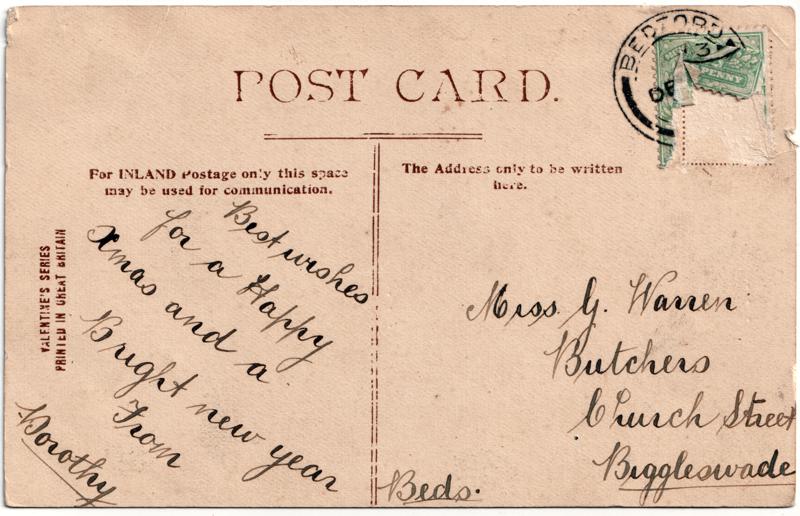 POST CARD.
For INLAND Postage only this space
may be used for communication.
The Address only to be written
here.
VALENTINE'S SERIES
PRINTED IN GREAT BRITAIN
Best wishes
for a Happy
Xmas and a
Bright new year
From
Dorothy
Miss G. Warren
Butchers
Church Street
Biggleswade
Beds.
BEDFORD
DE
PENNY